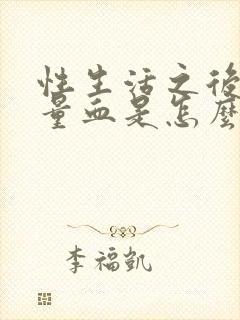 性生活之後
量血是怎麼
李福凱